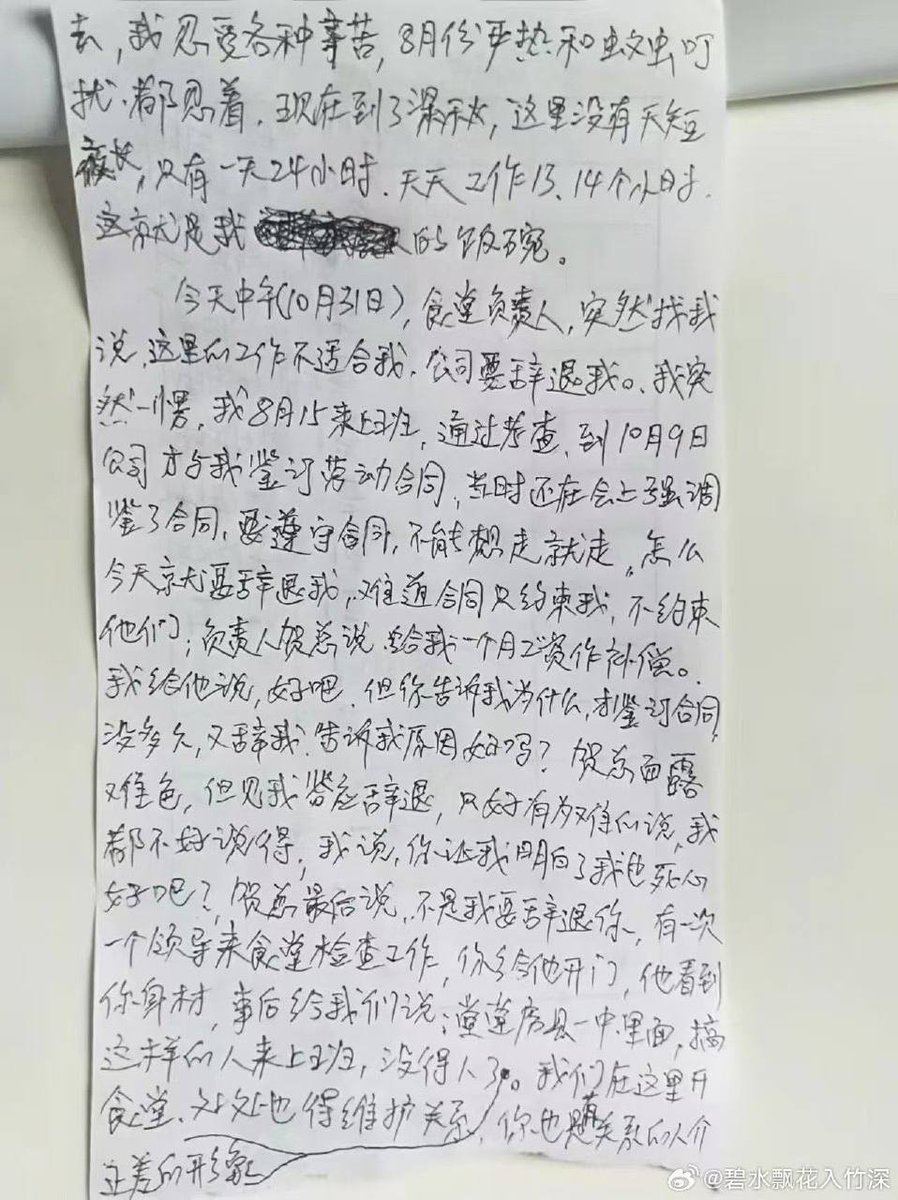 去，我忍受各种辛苦，8月份严热和蚊虫叮
扰.都忍着.现在到了深秋，这里没有天短
夜长，只有一天24小时.天天工作13、14个小时.
这就是我的饭碗。
今天中午(10月31日)，食堂负责人，突然找我
说，这里的工作不适合我，公司要辞退我。我突
然一愣，我8月15来上班，通过考查，到10月9日
公司才与我鉴订劳动合同，当时还在会上强调
鉴了合同，要遵守合同，不能想走就走，怎么
今天就要辞退我，难道合同只约束我，不约束
他们；负责人贺总说给我一个月工资作补偿。
我给他说，好吧，但你告诉我为什么，才鉴订合同，
没多久，又辞我.告诉我原因好吗？贺总面露
难色，但见我答应辞退，只好有为难的说，我
都不好说得，我说，你让我明白了我也死心
好吧？，贺总最后说，不是我要辞退你，有一次
一个领导来食堂检查工作，你给他开门，他看到
你身材，事后给我们说；堂堂房县一中里面，搞
这样的人来上班，没得人了。我们在这里开
食堂、处处也得维护关系，你也是有关系的人介
正差的形象
@碧水飘花入竹深